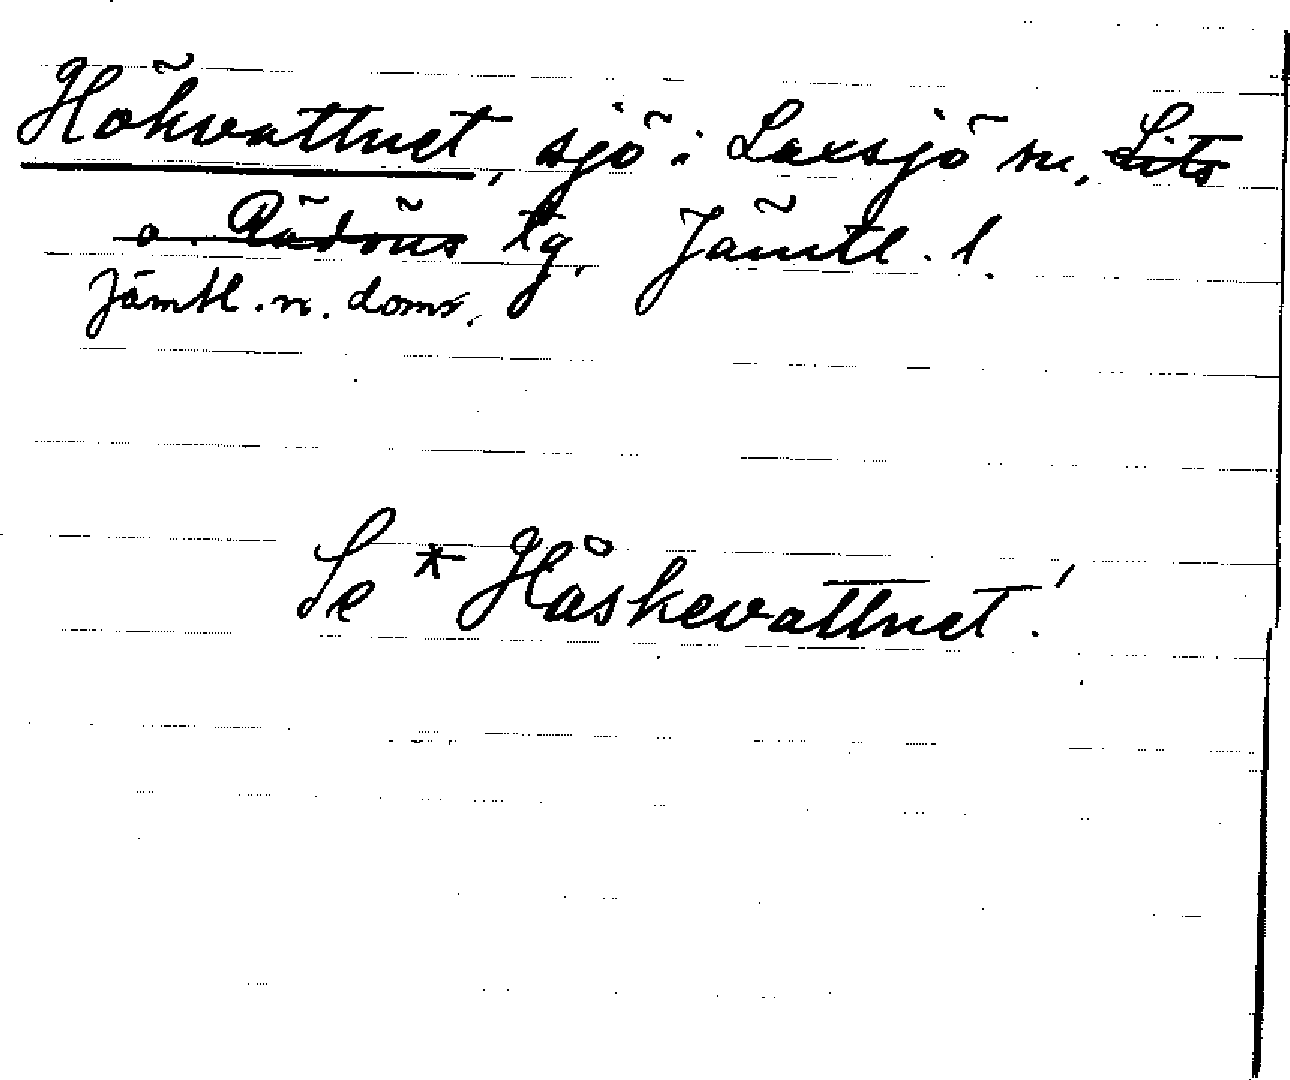 Hökvattnet, sjö i Laxsjö sn, Lits
o. Rödöns tg, Jämtl. l.
Jämtl. n. doms.
Se * Håskevattnet!